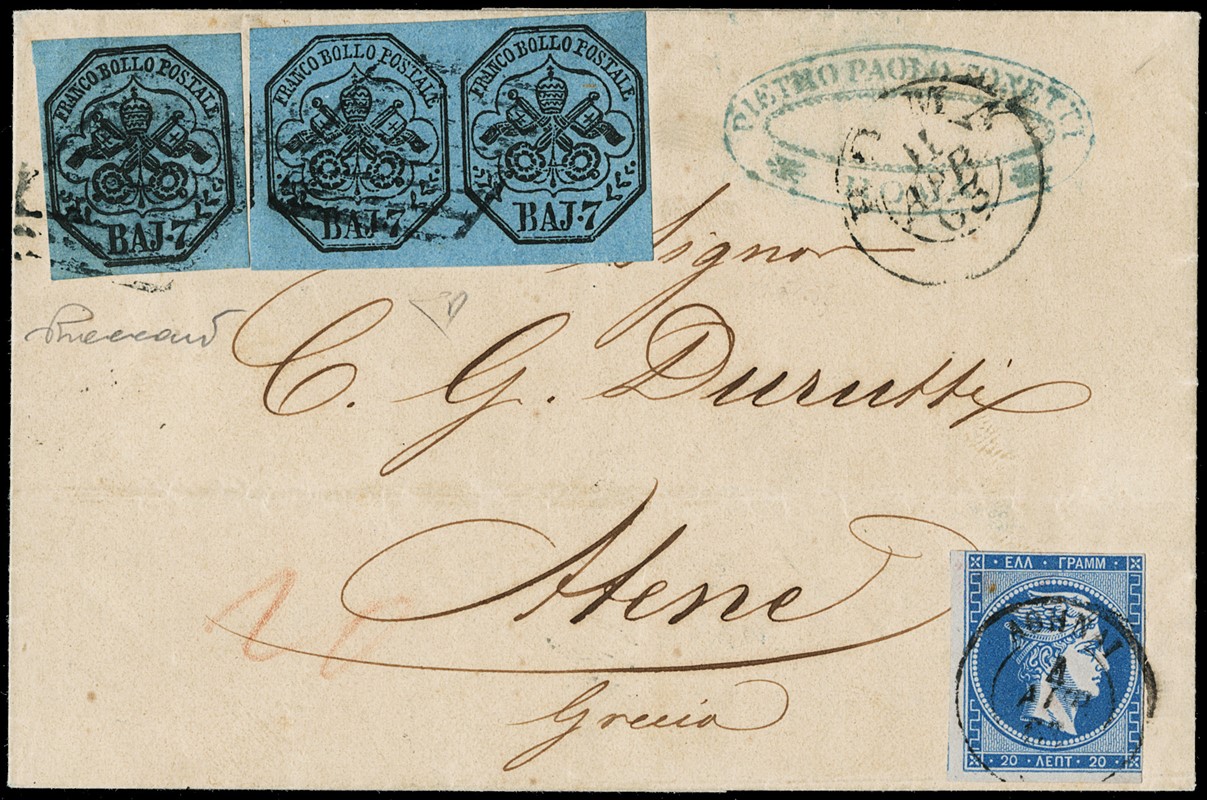 FRANCO BOLLO POSTALE
BAJ·7
FRANCO BOLLO POSTALE
BAJ·7
FRANCO BOLLO POSTALE
BAJ·7
PIETRO PAOLO
ROMA
11
APR
63
Signor
C. G. Durutti
Atene
Grecia
ΕΛΛ · ΓΡΑΜΜ
ΑΘΗΝΑΙ
4
ΑΠΡ
20 · ΛΕΠΤ · 20